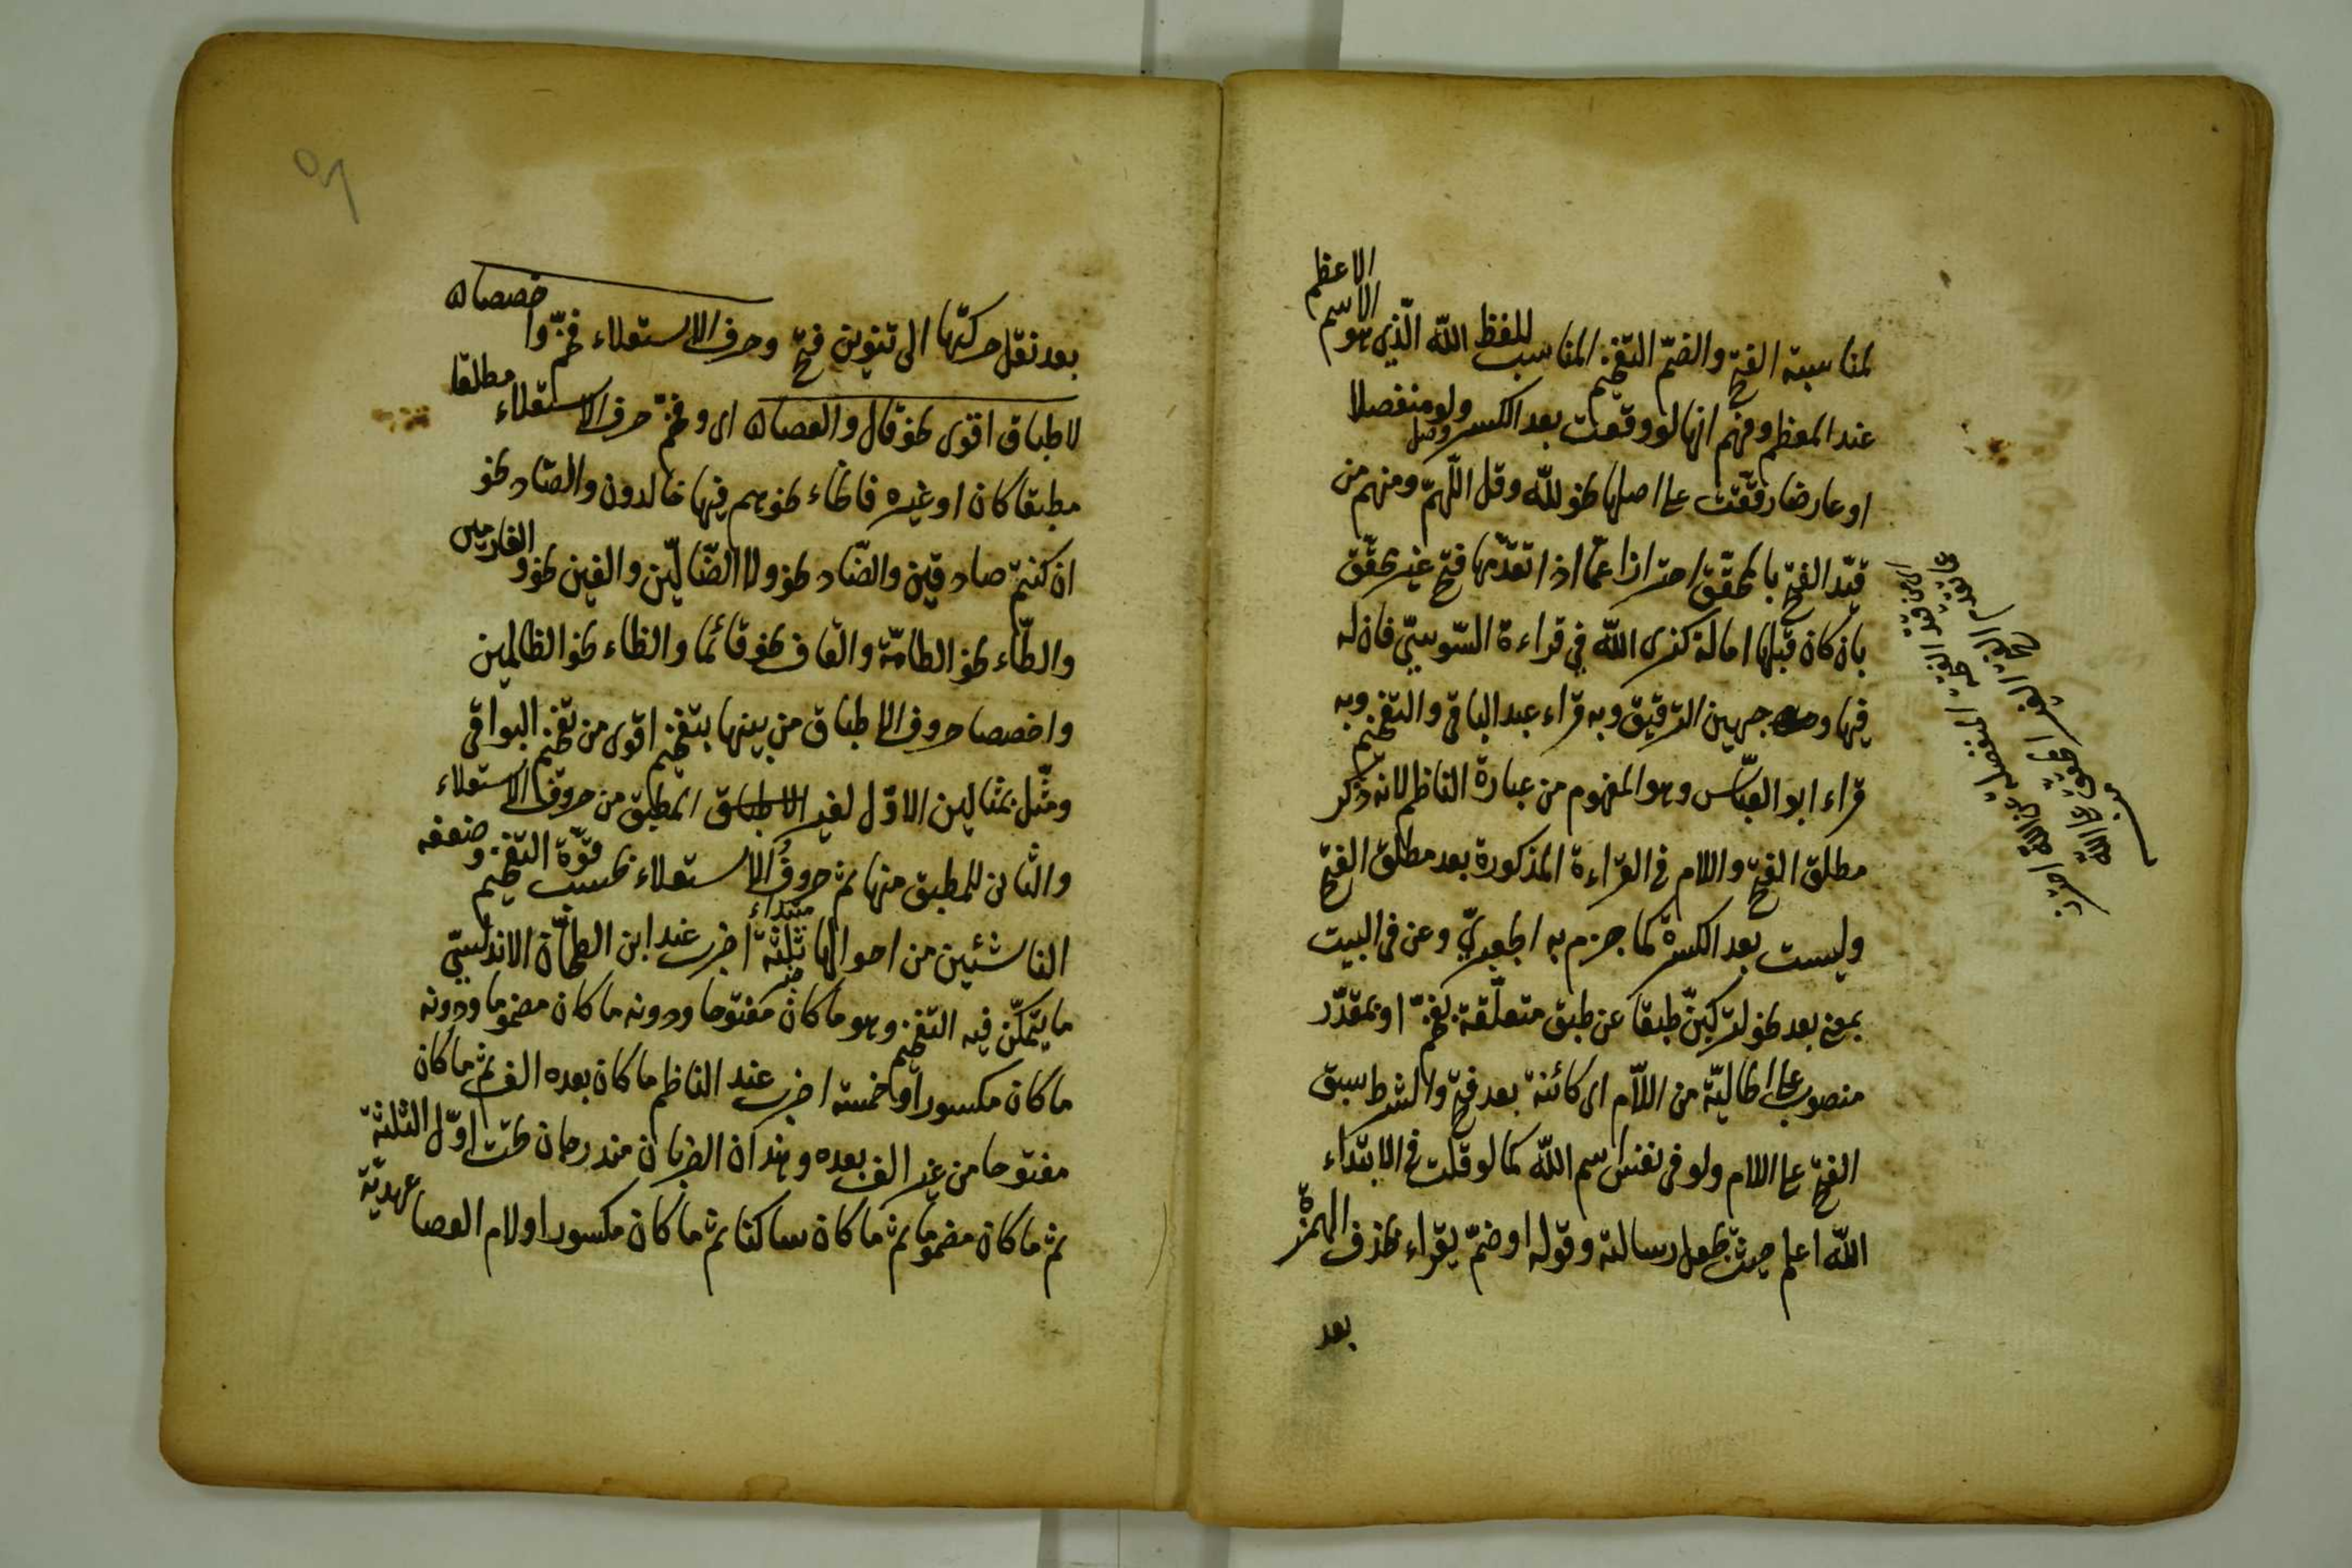 لمناسبة الفتح والضمّ التفخيم المناسب للفظ الله الّذي هو الاسم الاعظم
عند المعظم وفهم انها لو وقعت بعد الكسر ولو منفصلا
او عارضا رققت على اصلها نحو لله وقل اللّهمّ ومنهم من
قيّد الفتح بالمحقّق احترازا عمّا اذا تقدّمها فتح غير محقّق
بان كان قبلها امالة كنرى الله في قراءة السّوسيّ فان له
فيها وجهين الترقيق وبه قراء عبد الباقي والتفخيم وبه
قراء ابو العبّاس وهو المفهوم من عبارة الناظم لانه ذكر
مطلق الفتح واللام في القراءة المذكورة بعد مطلق الفتح
وليست بعد الكسرة كما جزم به الجعبريّ وعن في البيت
بمعنى بعد نحو لتركبنّ طبقا عن طبق متعلّقة بفخّم او بمقدّر
منصوب على الحاليّة من اللّام اى كائنة بعد فتح ولا يشترط سبق
الفتح على اللام ولو في نفس اسم الله كما لو قلت في الابتداء
الله اعلم حيث يجعل رسالته وقوله او ضمّ يقراء بحذف الهمزة
بعد
بعد نقل حركتها الى تنوين فتح وحرف الاستعلاء فخّم واخصصا
لاطباق اقوى نحو قال والعصا اى وفخّم حرف الاستعلاء مطلقا
مطبقا كان او غيره فالخاء نحو هم فيها خالدون والصّاد نحو
ان كنتم صادقين والضّاد نحو ولا الضّالّين والغين نحو والغارمين
والطّاء نحو الطامّة والقاف نحو قائما والظاء نحو الظالمين
واخصصا حروف الاطباق من بينها بتفخيم اقوى من تفخيم البواقى
ومثّل بمثالين الاوّل لغير المطبق من حروف الاستعلاء
والثانى للمطبق منها ثم حروف الاستعلاء بحسب قوّة التفخيم وضعفه
الناشئين من احوالها ثلثة اضرب عند ابن الطحّان الاندلسيّ
ما يتمكّن فيه التفخيم وهو ما كان مفتوحا ودونه ما كان مضموما ودونه
ما كان مكسورا او خمسة اضرب عند الناظم ما كان بعده الف ثم ما كان
مفتوحا من غير الف بعده وهذان الضربان مندرجان تحت اوّل الثلثة
ثم ما كان مضموما ثم ما كان ساكنا ثم ما كان مكسورا ولام العصا عهديّة